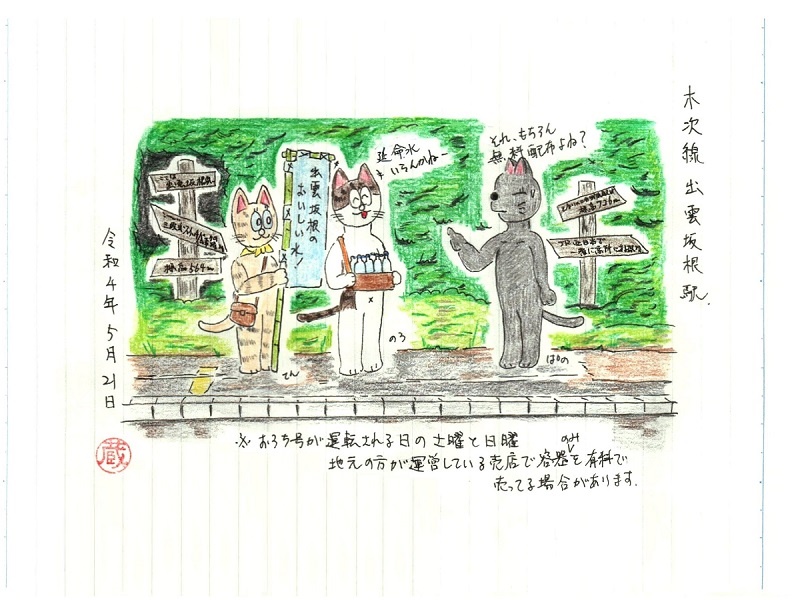 木次線 出雲坂根駅
それ、もちろん
無料配布よね?
延命水
いらんかねー
出雲坂根の
おいしい水!
ここは
出雲坂根駅
標高564m
標高726m
てん
のろ
ぱの
令和4年5月21日
蔵
※ おろち号が運転される日の土曜と日曜
地元の方が運営している売店で容器のみを有料で
売ってる場合があります。